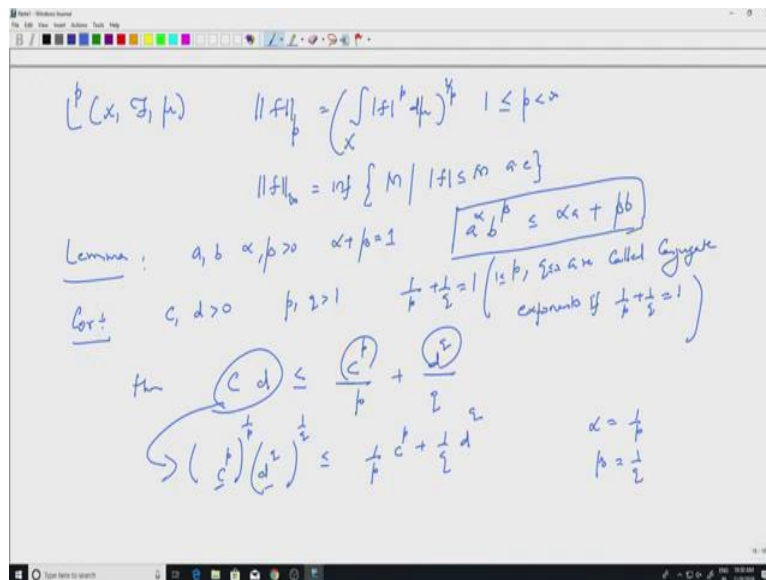 Note1 - Windows Journal
File Edit View Insert Actions Tools Help
L^p (X, F, μ) ||f||_p = (∫_X |f|^p dμ)^{1/p} 1 ≤ p < ∞
||f||_∞ = inf { M | |f| ≤ M a e }
Lemma : a, b α, β > 0 α + β = 1 a^α b^β ≤ αa + βb
Cor : c, d > 0 p, q > 1 1/p + 1/q = 1 (1 ≤ p, q ≤ ∞ are called Conjugate
exponents if 1/p + 1/q = 1)
then c d ≤ c^p/p + d^q/q
(c^p)^{1/p} (d^q)^{1/q} ≤ 1/p c^p + 1/q d^q α = 1/p
β = 1/q
Type here to search